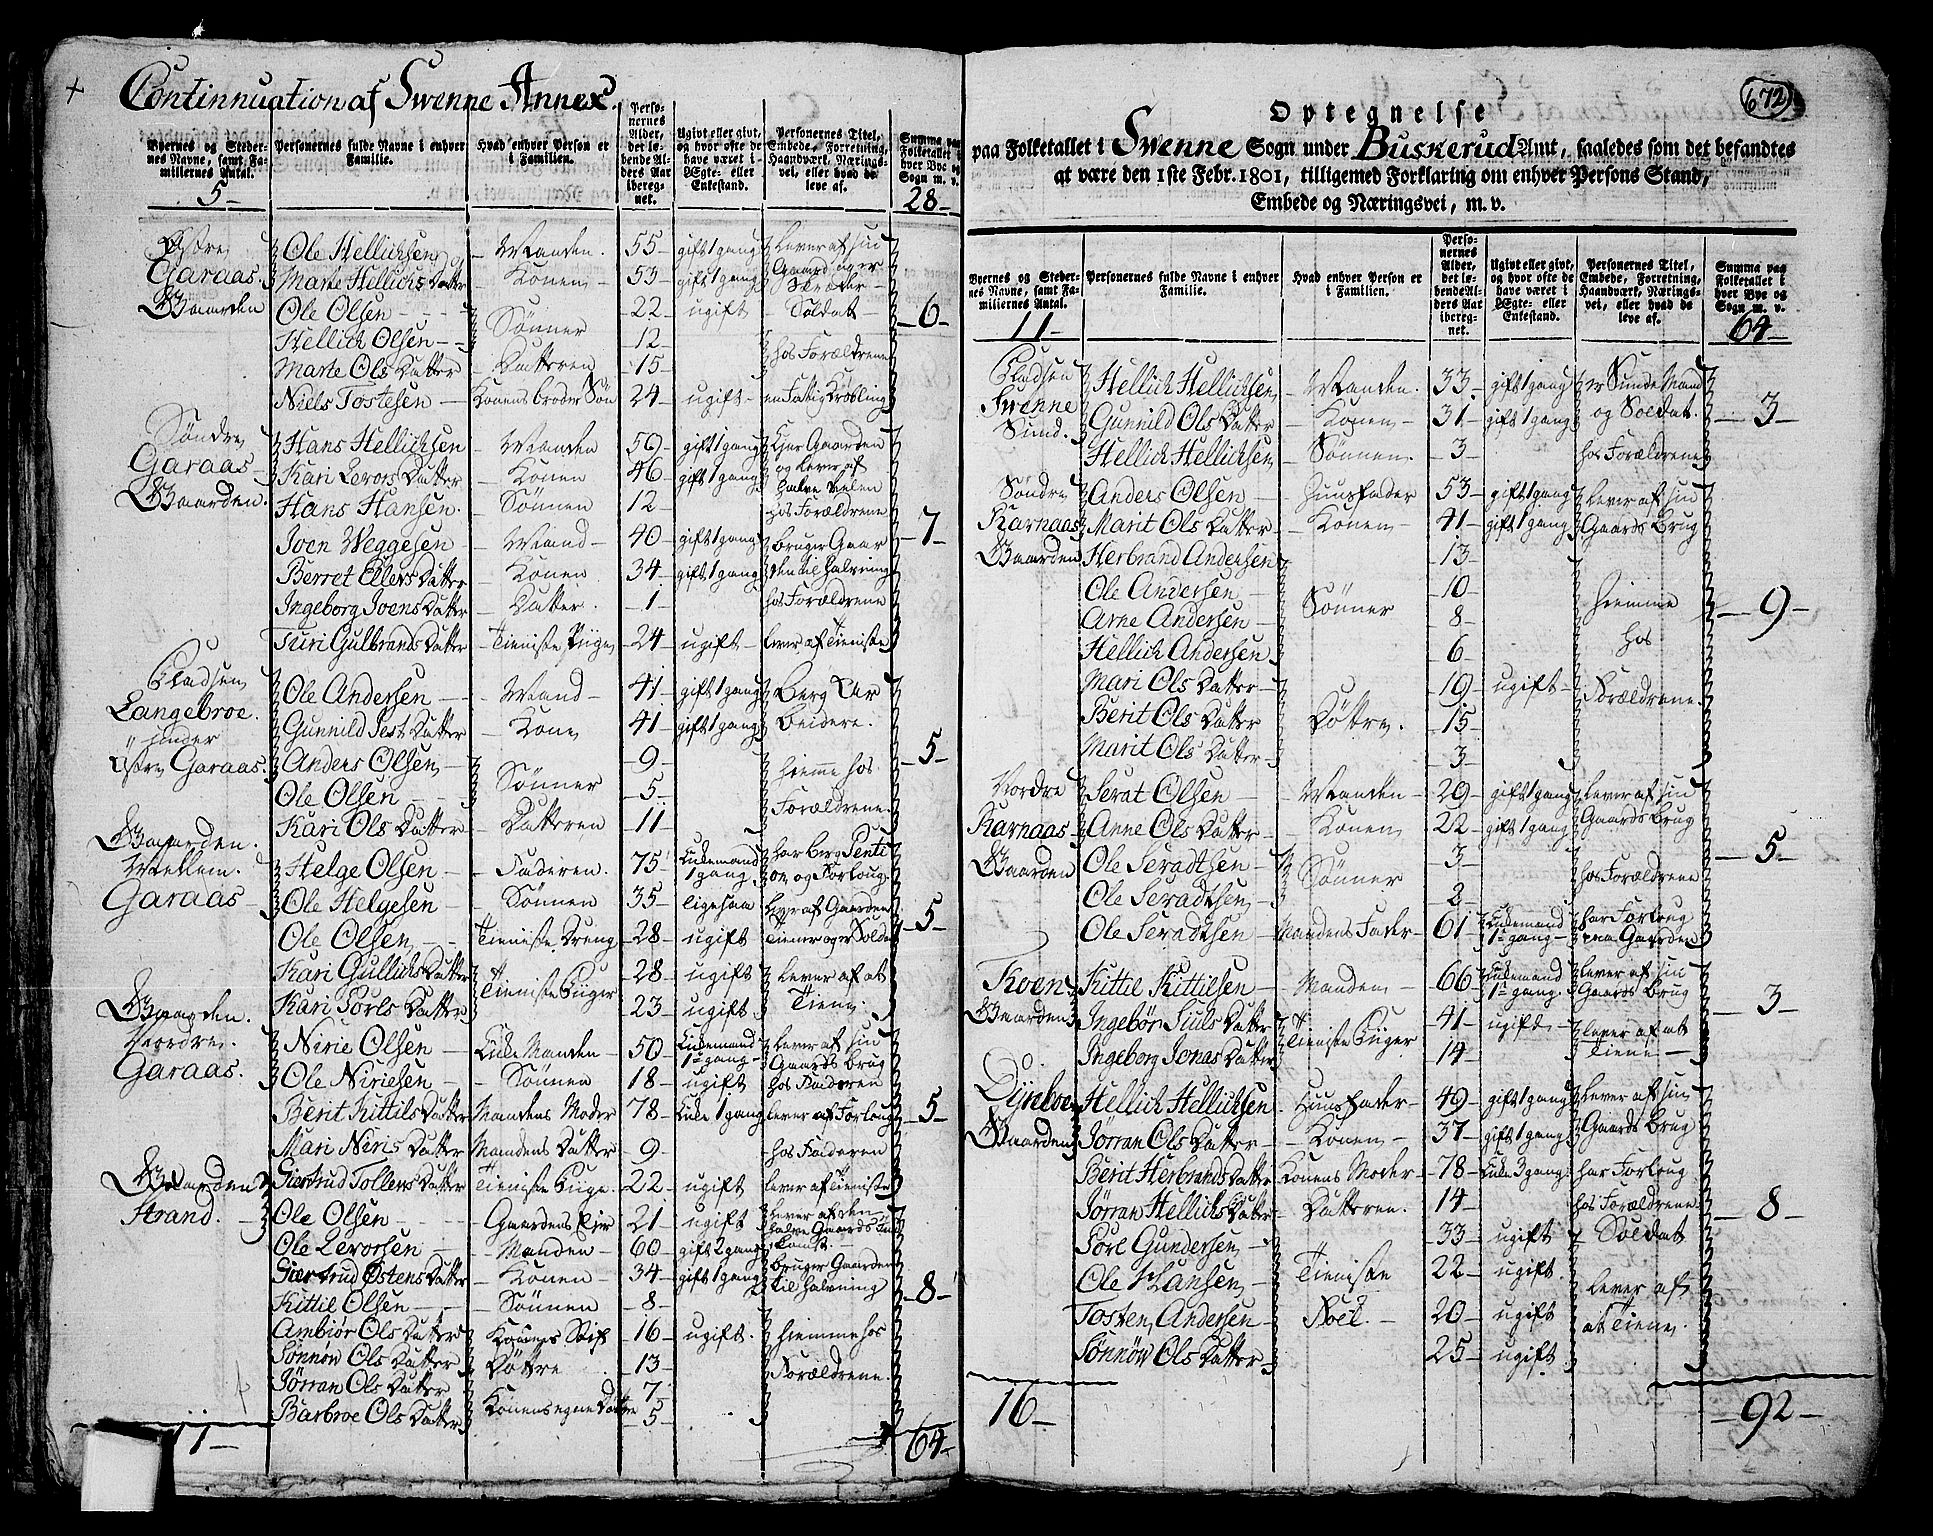 Continnuation af Swenne Annex.
Byernes og Stedernes Navne, samt Familiernes Antal.
Personernes fulde Navne i enhver Familie.
Hvad enhver Person er i Familien.
Personernes Alder, det løbende Alders Aar iberegnet.
Ugivt eller givt, og hvor ofte de have været i Ægte- eller Enkestand.
Personernes Titel, Embede, Forretning, Haandværk, Næringsvei, eller hvad de leve af.
Summa paa Folketallet i hver Bye og Sogn m. v.
5-
28-
Østre Garaas Gaarden
Ole Hellichsen - Manden. 55- gift 1 gang Lever af sin
Marte Hellichs Datter - Konen - 53- gift 1 gang Gaard og er Skræder
Ole Olsen - Sönner 22- ugift - Soldat - 6-
Hellich Olsen - 12-
Marte Ols Datter - Datteren - 15- hos Forældrene
Niels Tostesen - Konens broder Sön 24- ugift - en Fattig Kröbling
Søndre Garaas Gaarden.
Hans Hellichsen - Manden 50- gift 1 gang Ejer Gaarden
Kari Levors Datter - Konen 46- gift 1 gang og lever af halve delen
Hans Hansen. - Sönnen 12- hos Forældrene 7-
Joen Weggesen - Mand - 40- gift 1 gang bruger Gaar
Berret Ellers Datter - Konen 34- gift 1 gang den til halvning
Ingeborg Joens Datter - Datter. 1- hos Forældrene
Turi Gulbrands Datter - Tieniste Piige 24- ugift - lever af Tieniste
Pladsen Langebroe. under Østre Garaas.
Ole Andersen - Mand - 41- gift 1 gang Berg Ar
Gunnild Jest Datter - Kone 41- gift 1 gang beidere.
Anders Olsen - Sönner 9- hiemme hos 5-
Ole Olsen - 5- Forældrene.
Kari Ols Datter - Datteren 11-
Gaarden. Mellem. Garaas
Helge Olsen - Faderen. 75- Enkemand 1 gang har berg Penti on og Forloug
Ole Helgesen - Sönnen 35- ligesaa lever af Gaarden 5-
Ole Olsen - Tieniste Dreng 28- ugift Tiener og er Soldat
Kari Gullichs Datter Tieniste Piiger 28- ugift lever af at
Kari Torls Datter 23- ugift. Tiene.
Gaarden. Nordre. Garaas.
Nirie Olsen - Enke Manden - 50- Enkemand 1 gang lever af sin Gaards brug
Ole Niriesen - Sönnen 18- ugift hos Faderen
Berit Kittils Datter Mandens Moder 78- Enke 1 gang lever af Forloug 5-
Mari Neris Datter Mandens Datter 9- hos Faderen
Giertrud Tollevs Datter Tieniste Piige. 22- ugift lever af Tieniste
Gaarden Strand.
Ole Olsen - Gaardens Ejer 21- ugift lever af den halve Gaards Ind komst.
Ole Levorsen - Manden - 60- gift 2 gang bruger Gaarden
Giertrud Østens Datter - Konen - 34- gift 1 gang til halvning 8-
Kittil Olsen - Sönnen 8-
Ambiør Ols Datter Konens Stif 16- ugift. hiemme hos
Sønnøv Ols Datter Döttre 13- Forældrene.
Jørran Ols Datter 7-
Barbroe Ols Datter Konens egne Døttre 5-
11-
64-
672
Optegnelse
paa Folketallet i Swenne Sogn under Buskerud Amt, saaledes som det befandtes
at være den 1ste Febr. 1801, tilligemed Forklaring om enhver Persons Stand,
Embede og Næringsvei, m. v.
Byernes og Stedernes Navne, samt Familiernes Antal.
Personernes fulde Navne i enhver Familie.
Hvad enhver Person er i Familien.
Personernes Alder, det løbende Alders Aar iberegnet.
Ugivt eller givt, og hvor ofte de have været i Ægte- eller Enkestand.
Personernes Titel, Embede, Forretning, Haandværk, Næringsvei, eller hvad de leve af.
Summa paa Folketallet i hver Bye og Sogn m. v.
11-
64-
Pladsen Swenne Sund.
Hellich Hellichsen - Manden. 33- gift 1 gang er Sunde Mand
Gunnild Ols Datter - Konen - 31- gift 1 gang og Soldat. 3-
Hellich Hellichsen - Sönnen. 3- hos Forældrene
Søndre Karnaas Gaarden
Anders Olsen - Huusfader 53- gift 1 gang lever af sin
Marit Ols Datter - Konen - 41- gift 1 gang Gaards Brug
Herbrand Andersen 13-
Ole Andersen - Sönner 10- hiemme 9-
Arne Andersen - 8-
Hellich Andersen 6- hos
Mari Ols Datter - 19- ugift - Forældrene.
Berit Ols Datter Döttre. 15-
Marit Ols Datter - 3-
Nordre Karnaas Gaarden
Serat Olsen - Manden - 29- gift 1 gang lever af sin
Anne Ols Datter - Konen 22- gift 1 gang Gaards Brug
Ole Seradtsen - Sönner 3- hos Forældrene 5-
Ole Seradtsen - 2-
Ole Seradtsen - Mandens Fader - 61- Enkemand 1 gang - har Forloug paa Gaarden
Roen Gaarden
Kittil Kittilsen - Manden - 66- Enkemand 1 gang. lever af sin Gaards Brug
Ingebör Juls Datter Tieniste Piiger 41- ugift - lever af at 3-
Ingeborg Jonas Datter 14- Tiene -
Dÿnboe Gaarden
Hellich Hellichsen. Huusfader - 49- gift 1 gang lever af sin
Jørran Ols Datter - Konen - 37- gift 1 gang Gaards Brug
Berit Herbrands Datter Konens Moder - 78- Enke 3 gang har Forloug
Jørran Hellichs Datter - Datteren. 14- hos Forældrene 8-
Torl Gundersen - 33- ugift - Soldat
Ole Hansen - Tieniste 22- ugift. lever af
Tosten Andersen - Folk. 20- ugift at Tiene.
Sønnøv Ols Datter - 25- ugift.
16-
92-